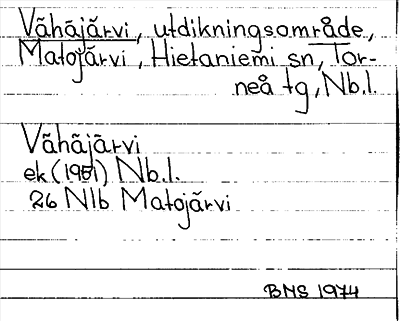 Vähäjärvi, utdikningsområde,
Matojärvi, Hietaniemi sn, Tor-
neå tg, Nb.l.
Vähäjärvi
ek (1951) Nb.l.
26 N1b Matojärvi
BNS 1974